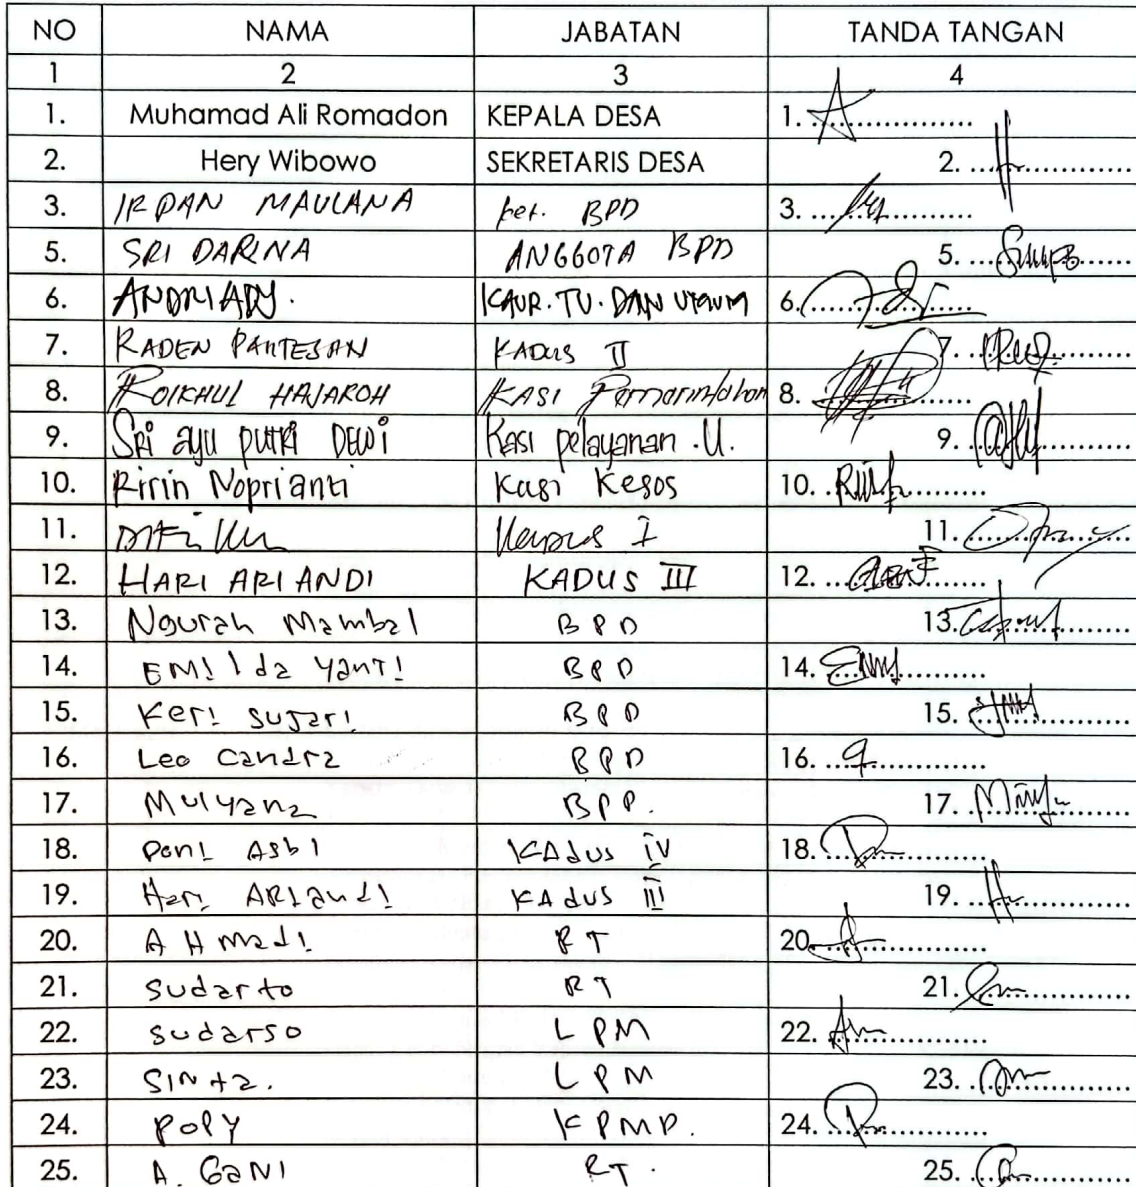 NO NAMA JABATAN TANDA TANGAN
1 2 3 4
1. Muhamad Ali Romadon KEPALA DESA 1. ..................
2. Hery Wibowo SEKRETARIS DESA 2. ..................
3. IRPAN MAULANA ket. BPD 3. ..................
5. SRI DARINA ANGGOTA BPD 5. ..................
6. ANDRIADY. KAUR. TU. DAN UMUM 6. ..................
7. RADEN PANTESAN KADUS II 7. ..................
8. ROIKHUL HAJAROH KASI Pemerintahan 8. ..................
9. SRi ayu putRi DEWi Kasi pelayanan .U. 9. ..................
10. Ririn Noprianti Kasi Kesos 10. ..................
11. I 11. ..................
12. HARI ARI ANDI KADUS III 12. ..................
13. Ngurah Mambal BPD 13. ..................
14. EMilda yanTi BPD 14. ..................
15. Keri sujari BPD 15. ..................
16. Leo Candra BPD 16. ..................
17. Mulyana BPP. 17. ..................
18. Doni Asbi KAdus iV 18. ..................
19. Hari ARiandi KAdus III 19. ..................
20. A H madi RT 20. ..................
21. Sudarto RT 21. ..................
22. sudarso LPM 22. ..................
23. SINta. LPM 23. ..................
24. POPY KPMD. 24. ..................
25. A. GaNI RT. 25. ..................